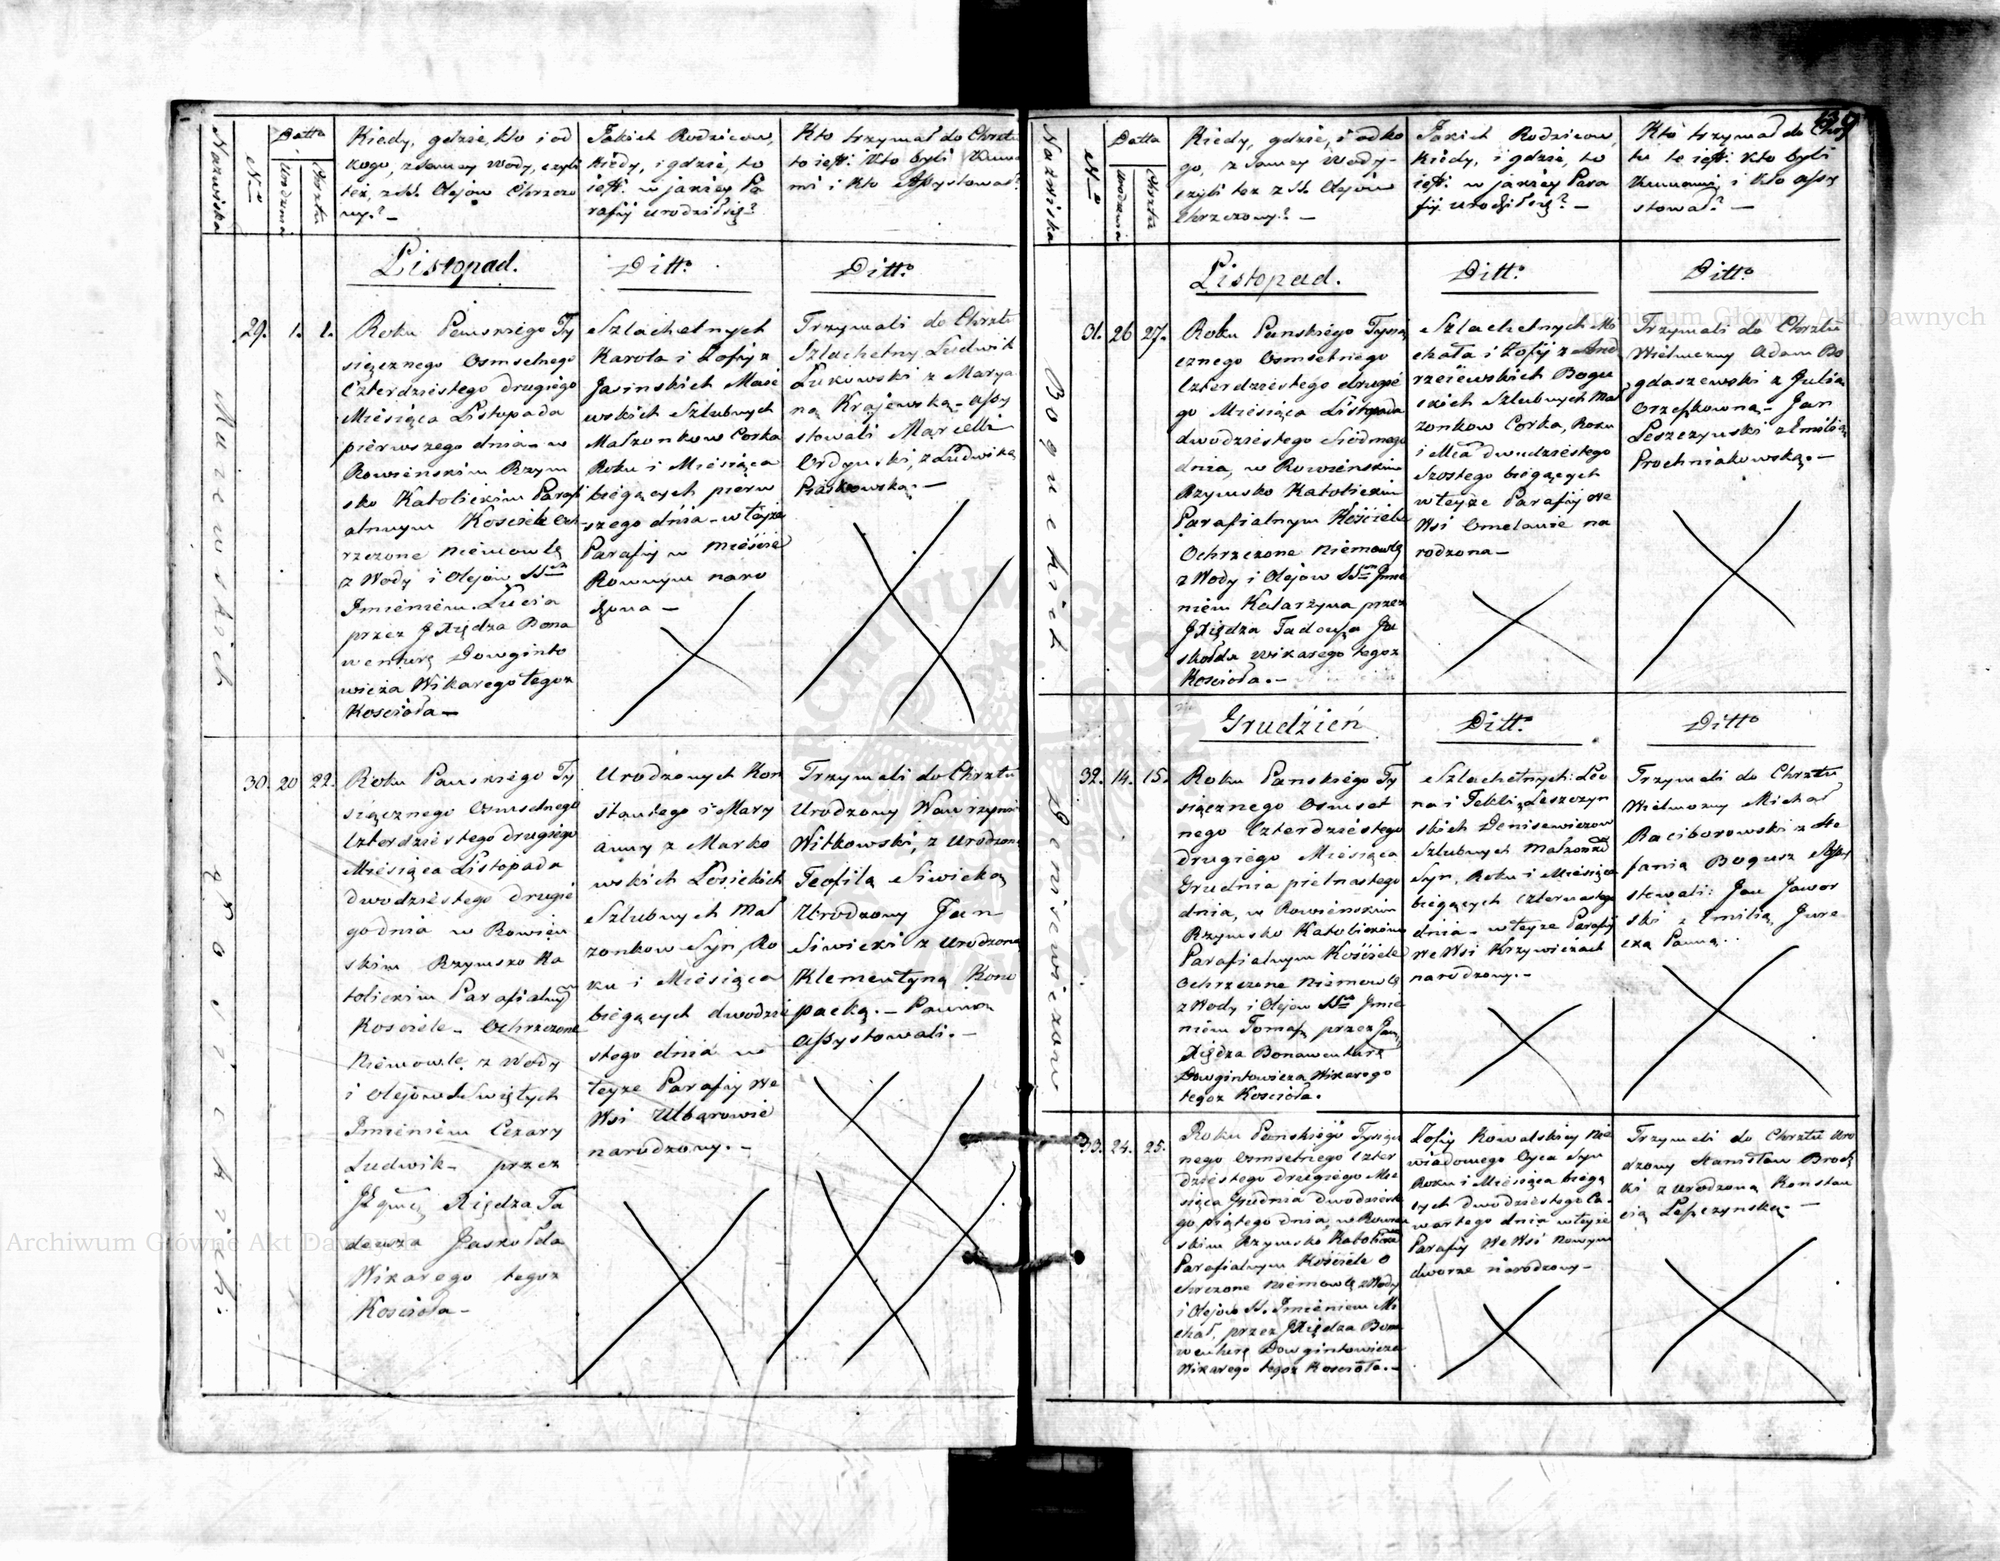 Nazwiska
Nro
Datta
Urodzenia
Chrztu
Kiedy, gdzie, kto i od
kogo, z samey Wody, czyli
też, z SS. Olejów Chrzczo
ny? —
Jakich Rodziców,
kiedy, i gdzie, to
iest: w jakiey Pa
rafij urodził się?
Kto trzymał do Chrztu
to iest: Kto byli Kumo
mi i kto Assystował?
Listopad.
Ditto
Ditto
Maiewskich
29. 1. 1.
Roku Panskiego Ty
siącznego Osmsetnego
Czterdziestego drugiego
Miesiąca Listopada
pierwszego dnia w
Rowieńskim Rzym
sko Katolickim Parafi
alnym Kosciele Och
rzczone Niemowlę
z Wody i Olejów SS
Imieniem Lucia
przez JXiędza Bona
wenturę Dowginto
wicza Wikarego tegoż
Kościoła —
Szlachetnych
Karola i Zofij z
Jasinskich Maie
wskich Szlubnych
Małżonkow Corka
Roku i Miesiąca
biegących pierw
szego dnia w teyże
Parafij w Mieście
Rownym naro
dzona —
Trzymali do Chrztu
Szlachetny Ludwik
Łukowski z Marya
ną Krajewską assy
stowali Marcelli
Ordynski, z Ludwiką
Piaskowską. —
30. 20 22.
Roku Panskiego Ty
siącznego Osmsetnego
Czterdziestego drugiego
Miesiąca Listopada
Dwodziestego drugie
go dnia w Rowień
skim Rzymsko Ka
tolickim Parafialnym
Kosciele Ochrzczone
Niemowle z Wody
i Olejów Swiętych
Imieniem Cezary
Ludwik przez
Xiędza Ta
deusza Jaszołda
Wikarego tegoż
Kościoła —
Urodzonych Kon
stantego i Mary
anny z Marko
wskich
Szlubnych Mał
zonkow Syn, Ro
ku i Miesiąca
bieżących dwodzie
stego dnia w
teyże Parafij we
Wsi Ulbarowie
narodzony. —
Trzymali do Chrztu
Urodzony Wawrzyniec
Witkowski, z Urodzoną
Teofilą Siwicką
Urodzony Jan
Siwicki z Urodzoną
Klementyną Kono
packą. — Panną
Assystowali. —
Nazwiska
Nro
Datta
Urodzenia
Chrztu
Kiedy, gdzie, i od ko
go, z samey Wody
czyli też z SS. Olejów
Chrzczony? —
Jakich Rodziców,
kiedy, i gdzie, to
iest: w jakiéy Para
fij urodził się? —
Kto trzymał do Chrz
tu to iest: kto byli
Kumami, i kto assy
stował? —
Listopad.
Ditto
Ditto
Boguckich
31. 26 27.
Roku Panskiego Tysią
cznego Osmsetnego
Czterdziestego drugie
go Miesiąca Listopada
dwodziestego Siódmego
dnia, w Rowieńskim
Rzymsko Katolickim
Parafialnym Kościele
Ochrzczone Niemowlę
z Wody i Olejów SS Imie
niem Katarzyna przez
JXiędza Tadeusza Ja
szołda Wikarego tegoż
Kościoła. —
Szlachetnych Mi
chała i Zofij z And
rzeiewskich Bogu
ckich Szlubnych Mał
zonkow Corka, Roku
i Mca dwudziestego
Szostego biegących
w teyże Parafij we
Wsi Omelanie na
rodzona —
Trzymali do Chrztu
Wielmożny Adam Bo
gdaszewski z Julią
Orzeszkowną — Jan
Leszczynski z Emilią
Prochniakowską. —
Grudzień
Ditto
Ditto
Denisewiczow
32. 14. 15.
Roku Panskiego Ty
siącznego Osmset
nego Czterdziestego
drugiego Miesiąca
Grudnia pietnastego
dnia, w Rowieńskim
Rzymsko Katolickim
Parafialnym Kościele
Ochrzczone Niemowlę
z Wody i Olejów SS Imie
niem Tomasz, przez
Xiędza Bonawenturę
Dowgintowicza Wikarego
tegoż Kościoła.
Szlachetnych: Leo
na i Tekli z Leszczyn
skich Denisewiczow
Szlubnych Małżonków
Syn, Roku i Miesiąca
bieżących czternastego
dnia w teyże Parafij
we Wsi Krzywiczach
narodzony. —
Trzymali do Chrztu
Wielmożny Michał
Raciborowski z Ste
fanią Bogusz Assy
stowali: Jan Jawor
ski z Emilią Jure
cką Panną.
33. 24. 25.
Roku Panskiego Tysiącz
nego Osmsetnego Czter
dziestego drugiego Mie
siąca Grudnia dwodzieste
go piątego dnia, w Rowień
skim Rzymsko Katolickim
Parafialnym Kościele O
chrzczone Niemowlę z Wody
i Olejów SS. Imieniem Mi
chał, przez JXiędza Bona
wenturę Dowgintowicza
Wikarego tegoż Kościoła. —
Zofij Kowalskiey Nie
wiadomego Oyca Syn
Roku i Miesiąca bieżą
cych dwodziestego Cz
wartego dnia w teyże
Parafij we Wsi Nowym
dworze narodzony —
Trzymali do Chrztu Uro
dzony Stanisław Brodz
ki z Urodzoną Konstan
cią Leszczynską. —
Archiwum Główne Akt Dawnych
Archiwum Główne Akt Dawnych